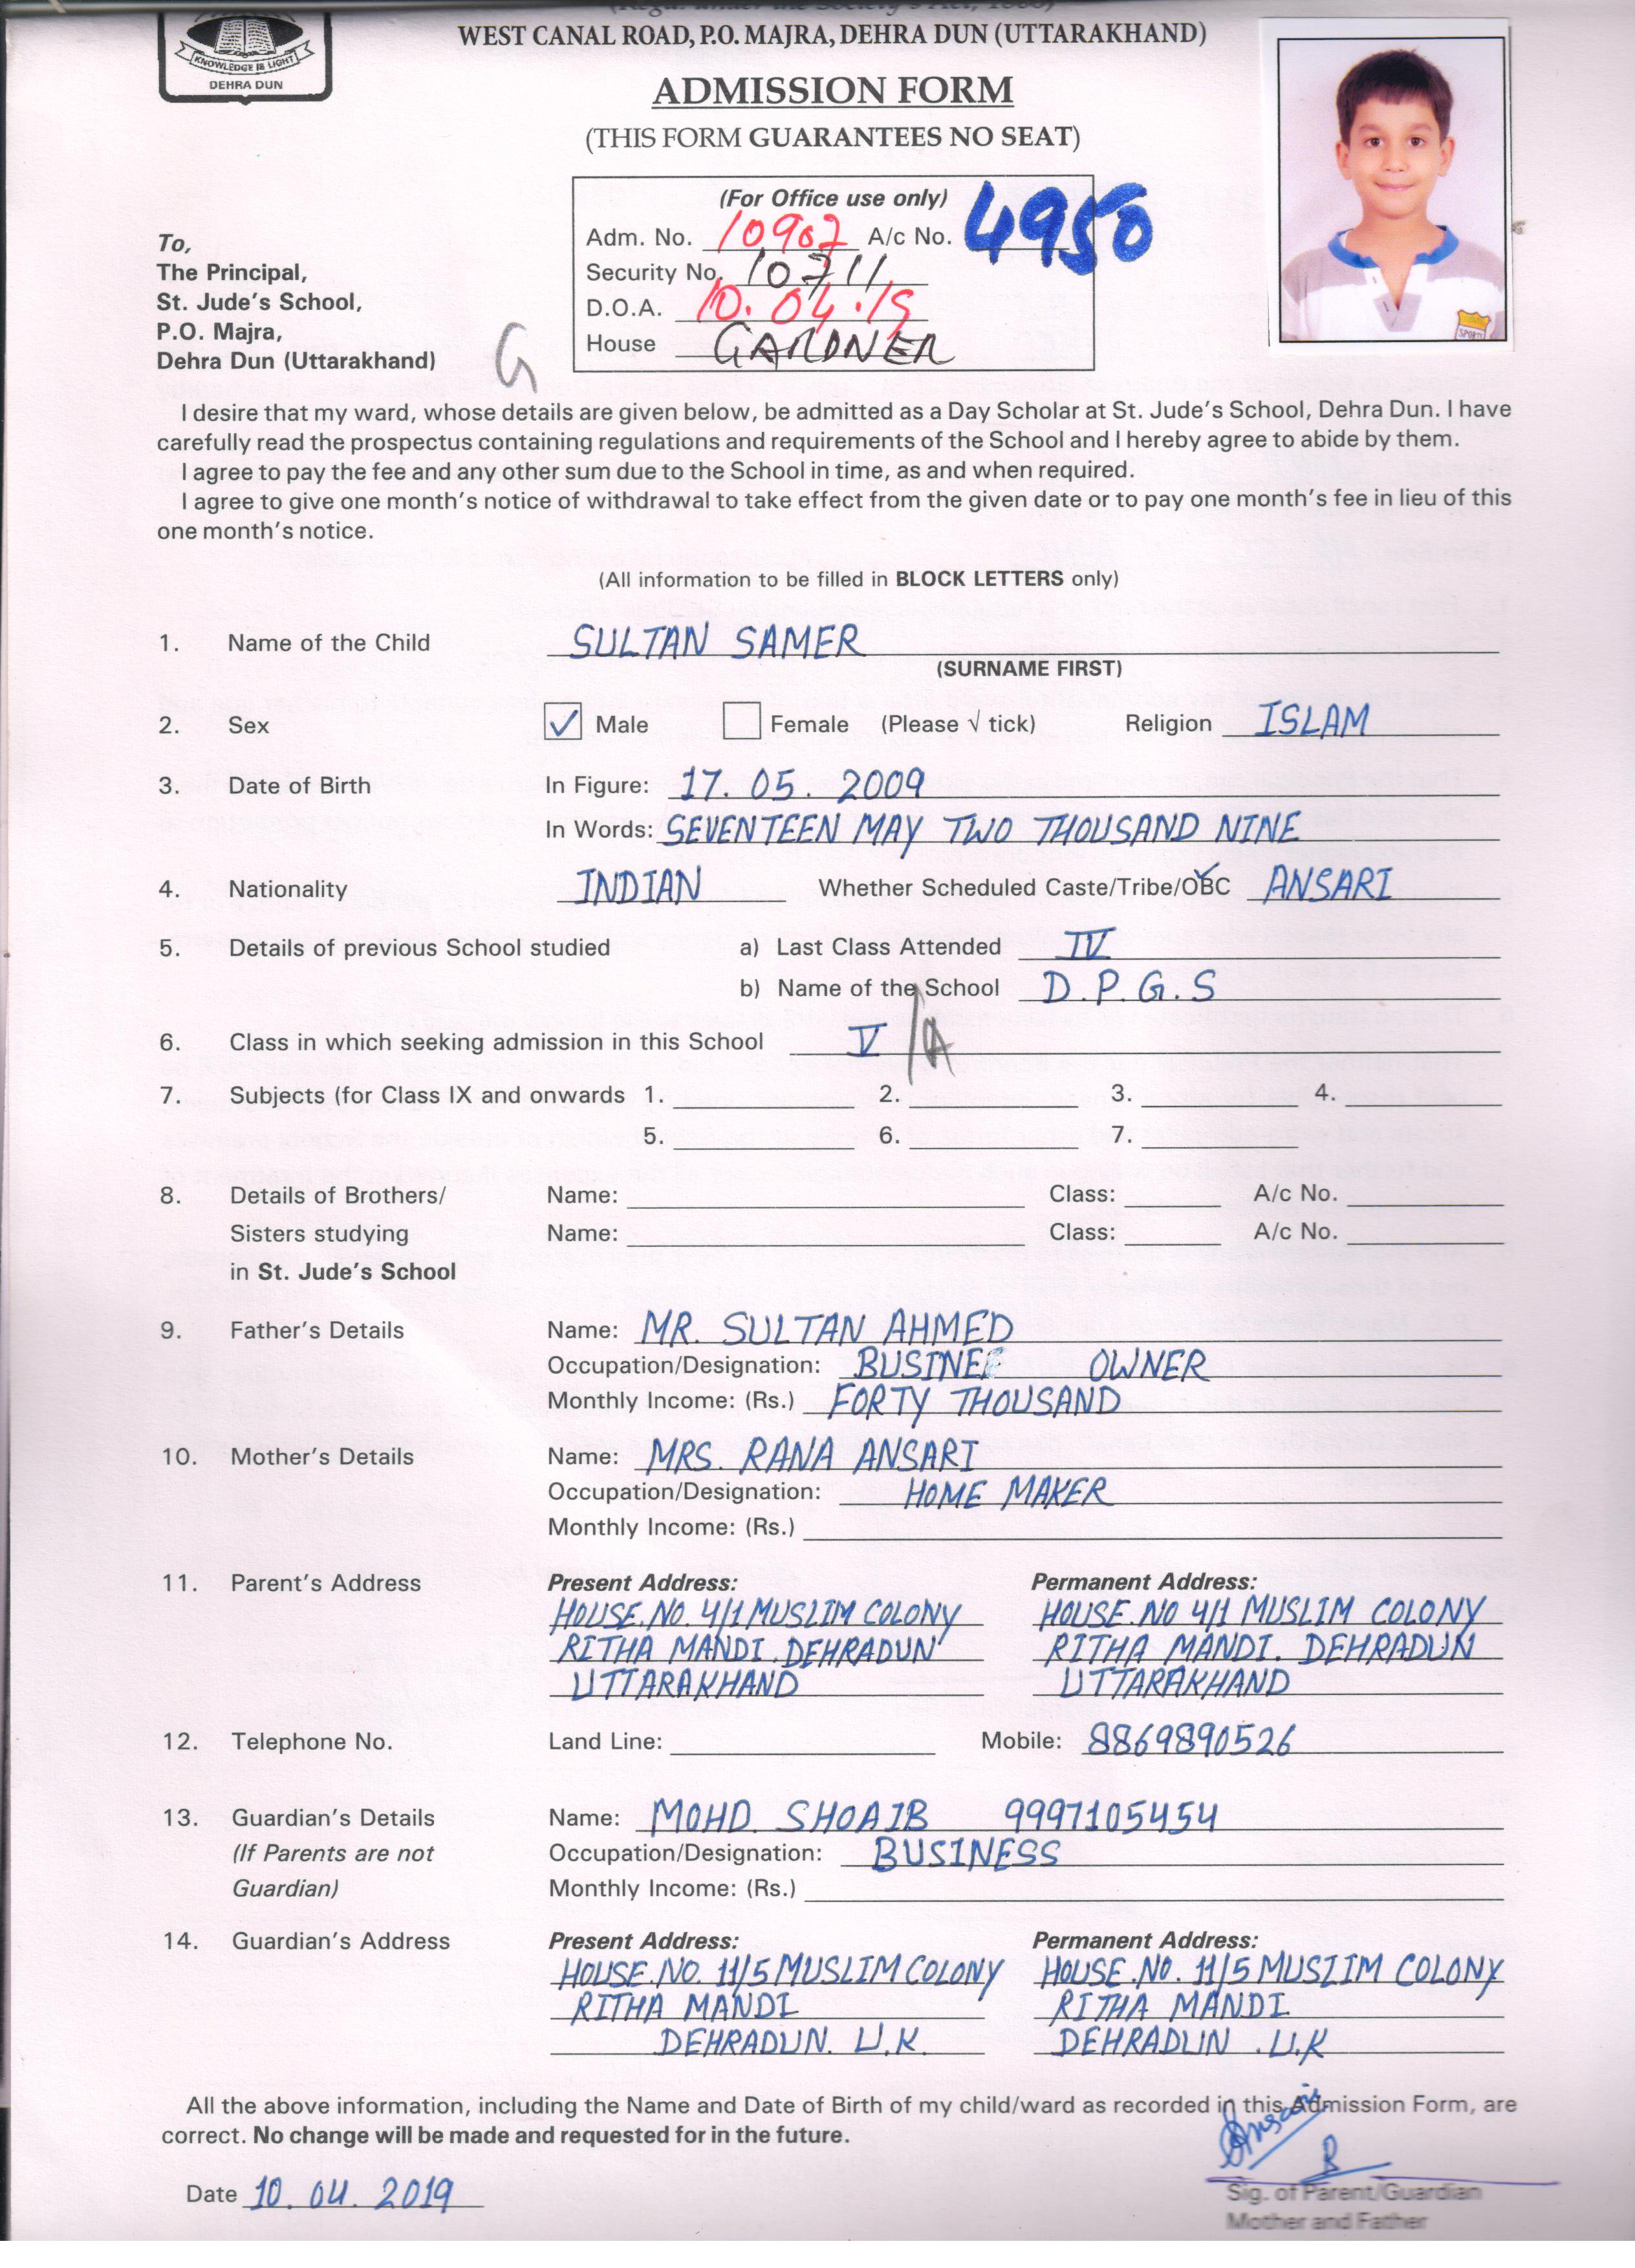 WEST CANAL ROAD, P.O. MAJRA, DEHRA DUN (UTTARAKHAND)
KNOWLEDGE IS LIGHT
DEHRA DUN
ADMISSION FORM
(THIS FORM GUARANTEES NO SEAT)
(For Office use only)
Adm. No. 10907 A/c No. 4950
Security No. 10711
D.O.A. 10.04.19
House GARDNER
To,
The Principal,
St. Jude's School,
P.O. Majra,
Dehra Dun (Uttarakhand)
G
SPORT
I desire that my ward, whose details are given below, be admitted as a Day Scholar at St. Jude's School, Dehra Dun. I have
carefully read the prospectus containing regulations and requirements of the School and I hereby agree to abide by them.
I agree to pay the fee and any other sum due to the School in time, as and when required.
I agree to give one month's notice of withdrawal to take effect from the given date or to pay one month's fee in lieu of this
one month's notice.
(All information to be filled in BLOCK LETTERS only)
1. Name of the Child SULTAN SAMER
(SURNAME FIRST)
2. Sex ✓ Male Female (Please √ tick) Religion ISLAM
3. Date of Birth In Figure: 17. 05. 2009
In Words: SEVENTEEN MAY TWO THOUSAND NINE
4. Nationality INDIAN Whether Scheduled Caste/Tribe/OBC ANSARI
5. Details of previous School studied a) Last Class Attended IV
b) Name of the School D.P.G.S
6. Class in which seeking admission in this School V/A
7. Subjects (for Class IX and onwards 1. 2. 3. 4.
5. 6. 7.
8. Details of Brothers/ Name: Class: A/c No.
Sisters studying Name: Class: A/c No.
in St. Jude's School
9. Father's Details Name: MR. SULTAN AHMED
Occupation/Designation: BUSINE OWNER
Monthly Income: (Rs.) FORTY THOUSAND
10. Mother's Details Name: MRS. RANA ANSARI
Occupation/Designation: HOME MAKER
Monthly Income: (Rs.)
11. Parent's Address Present Address: Permanent Address:
HOUSE.NO. 4/1 MUSLIM COLONY HOUSE.NO 4/1 MUSLIM COLONY
RITHA MANDI.DEHRADUN RITHA MANDI. DEHRADUN
UTTARAKHAND UTTARAKHAND
12. Telephone No. Land Line: Mobile: 8869890526
13. Guardian's Details Name: MOHD SHOAIB 9997105454
(If Parents are not Occupation/Designation: BUSINESS
Guardian) Monthly Income: (Rs.)
14. Guardian's Address Present Address: Permanent Address:
HOUSE.NO. 11/5 MUSLIM COLONY HOUSE.NO. 11/5 MUSLIM COLONY
RITHA MANDI RITHA MANDI
DEHRADUN. U.K. DEHRADUN .U.K
All the above information, including the Name and Date of Birth of my child/ward as recorded in this Admission Form, are
correct. No change will be made and requested for in the future.
Ansari
Date 10. 04. 2019
Sig. of Parent/Guardian
Mother and Father